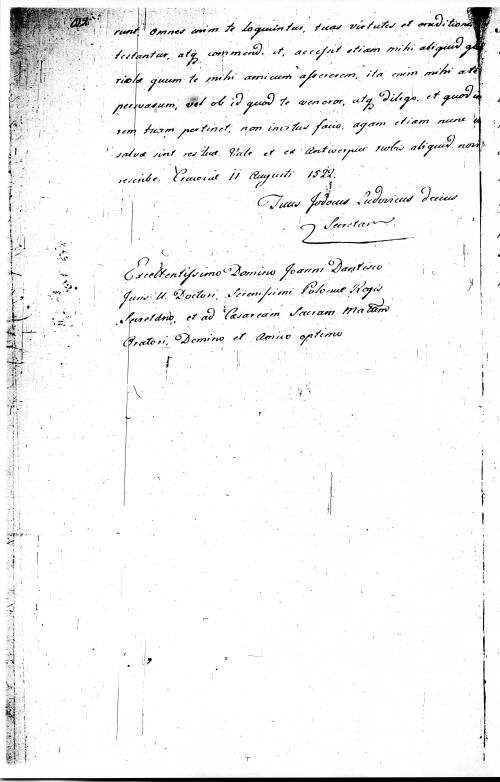 runt, omnes enim te loquuntur, tuas virtutes et eruditione
testantur, atq commend. et, accessit etiam mihi aliquid glo
riolæ quum te mihi amicum assererem, ita enim mihi
persuasum, vel ob id quod te veneror, utq diligo, et quod
rem tuam pertinet, non invitus facio, agam etiam nunc
salvæ sint res tuæ. Vale et ex Antwerpia nobis aliquid novi
rescribe. Cracoviæ 11 Augusti 1522.
Tuus Jodocus Ludovicus Decius
Secretar
Excellentissimo Domino Joanni Dantisco
Juris U. Doctori, Serenissimi Poloniæ Regis
Secretario, et ad Cæsaream Sacram Mattem
Oratori, Domino et Amico optimo